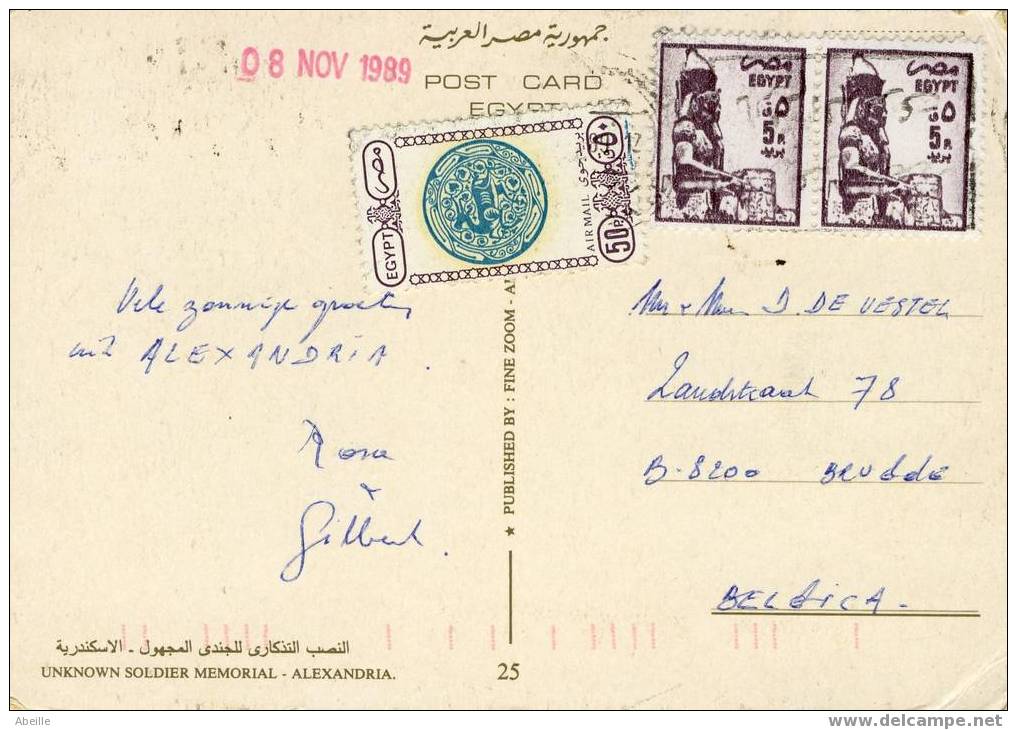 جمهورية مصر العربية
08 NOV 1989
POST CARD
EGYPT
مصر
EGYPT
5 P
٥ ق
مصر
EGYPT
5 P
٥ ق
مصر
EGYPT
بريد جوى
AIR MAIL
50 P
٥٠
Vele zonnige groeten
uit ALEXANDRIA.
Rosa
+
Gilbert.
Mr + Mevr D. DE VESTEL
Zandstraat 78
B-8200 BRUGGE
BELGICA-
★ PUBLISHED BY : FINE ZOOM - A
النصب التذكارى للجندى المجهول - الاسكندرية
UNKNOWN SOLDIER MEMORIAL - ALEXANDRIA.
25
Abeille
www.delcampe.net